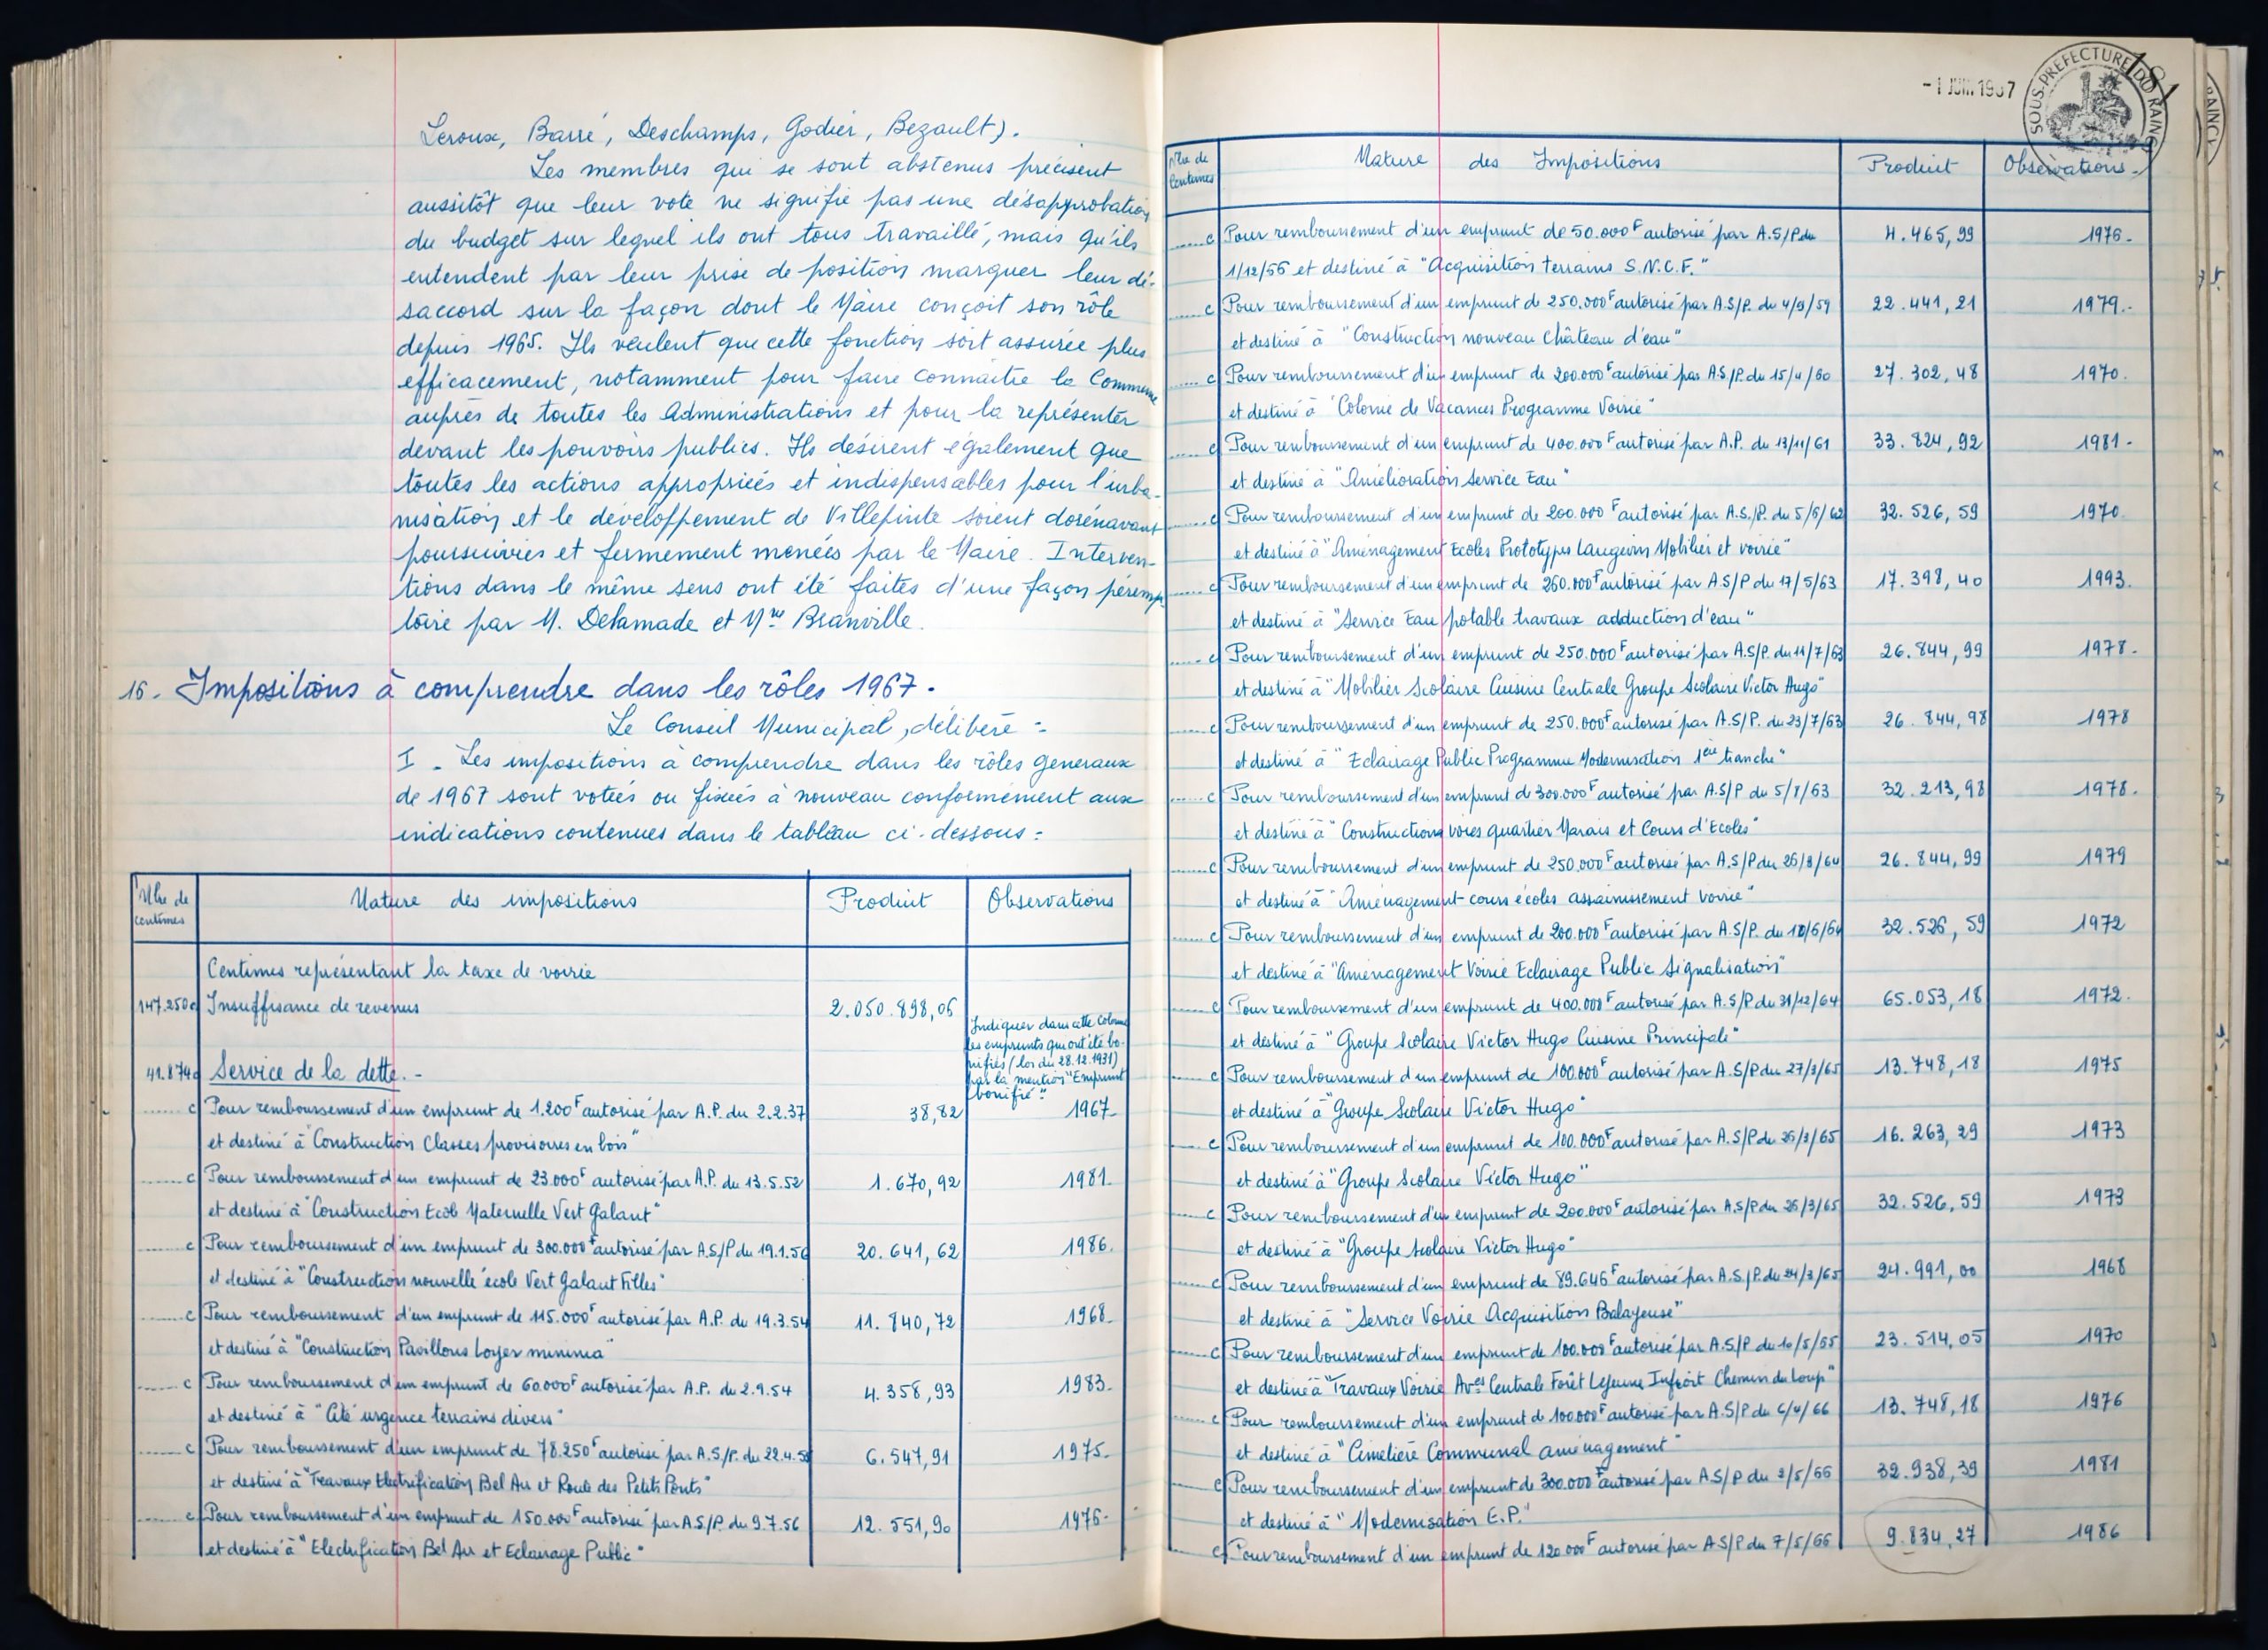 Leroux, Barré, Deschamps, Godier, Bezault).
Les membres qui se sont abstenus précisent
aussitôt que leur vote ne signifie pas une désapprobation
du budget sur lequel ils ont tous travaillé, mais qu'ils
entendent par leur prise de position marquer leur dé-
saccord sur la façon dont le Maire conçoit son rôle
depuis 1965. Ils veulent que cette fonction soit assurée plus
efficacement, notamment pour faire connaître la Commune
auprès de toutes les Administrations et pour la représenter
devant les pouvoirs publics. Ils désirent également que
toutes les actions appropriées et indispensables pour l'urba-
nisation et le développement de Villepinte soient dorénavant
poursuivies et fermement menées par le Maire. Interven-
tions dans le même sens ont été faites d'une façon péremp
toire par M. Delamade et Mme Branville.
16 - Impositions à comprendre dans les rôles 1967.
Le Conseil Municipal, délibère :
I - Les impositions à comprendre dans les rôles généraux
de 1967 sont votées ou fixées à nouveau conformément aux
indications contenues dans le tableau ci-dessous :
Nbre de centimes | Nature des impositions | Produit | Observations
Centimes représentant la taxe de voirie
147.250c Insuffisance de revenus 2.050.898,06
Indiquer dans cette colonne
les emprunts qui ont été bo-
nifiés (loi du 28.12.1931)
par la mention "Emprunt
bonifié".
41.874c Service de la dette. -
c Pour remboursement d'un emprunt de 1.200F autorisé par A.P. du 2.2.37 38,82 1967-
et destiné à "Construction Classes provisoires en bois"
c Pour remboursement d'un emprunt de 23.000F autorisé par A.P. du 13.5.52 1.670,92 1981-
et destiné à "Construction Ecole Maternelle Vert Galant"
c Pour remboursement d'un emprunt de 300.000F autorisé par A.S/P du 19.1.56 20.641,62 1986.
et destiné à "Construction nouvelle école Vert Galant Filles"
c Pour remboursement d'un emprunt de 115.000F autorisé par A.P. du 19.3.54 11.840,72 1968-
et destiné à "Construction Pavillons Loyer minima"
c Pour remboursement d'un emprunt de 60.000F autorisé par A.P. du 2.9.54 4.358,93 1983-
et destiné à "Cité urgence terrains divers"
c Pour remboursement d'un emprunt de 78.250F autorisé par A.S/P. du 22.4. 6.547,91 1975-
et destiné à "Travaux Electrification Bel Air et Route des Petits Ponts"
c Pour remboursement d'un emprunt de 150.000F autorisé par A.S/P. du 9.7.56 12.551,90 1976-
et destiné à "Electrification Bel Air et Eclairage Public"
-1 JUIN 1967
SOUS-PREFECTURE DU RAINCY
181
Nbre de Centimes | Nature des Impositions | Produit | Observations-
c Pour remboursement d'un emprunt de 50.000F autorisé par A.S/P du 4.465,99 1976-
1/12/56 et destiné à "Acquisition terrains S.N.C.F."
c Pour remboursement d'un emprunt de 250.000F autorisé par A.S/P. du 4/9/59 22.441,21 1979.-
et destiné à "Construction nouveau Château d'eau"
c Pour remboursement d'un emprunt de 200.000F autorisé par A.S/P. du 15/4/60 27.302,48 1970.
et destiné à "Colonie de Vacances Programme Voirie"
c Pour remboursement d'un emprunt de 400.000F autorisé par A.P. du 13/11/61 33.824,92 1981-
et destiné à "Amélioration Service Eau"
c Pour remboursement d'un emprunt de 200.000F autorisé par A.S./P. du 5/6/62 32.526,59 1970.
et destiné à "Aménagement Ecoles Prototypes Langevin Mobilier et voirie"
c Pour remboursement d'un emprunt de 260.000F autorisé par A.S/P du 17/5/63 17.398,40 1993.
et destiné à "Service Eau potable travaux adduction d'eau"
c Pour remboursement d'un emprunt de 250.000F autorisé par A.S/P. du 11/7/63 26.844,99 1978-
et destiné à "Mobilier Scolaire Cuisine Centrale Groupe Scolaire Victor Hugo"
c Pour remboursement d'un emprunt de 250.000F autorisé par A.S/P. du 23/7/63 26.844,98 1978
et destiné à "Eclairage Public Programme Modernisation 1ère tranche"
c Pour remboursement d'un emprunt de 300.000F autorisé par A.S/P du 5/8/63 32.213,98 1978.
et destiné à "Constructions voies quartier Marais et Cours d'Ecoles"
c Pour remboursement d'un emprunt de 250.000F autorisé par A.S/P du 26/8/64 26.844,99 1979
et destiné à "Aménagement cours écoles assainissement voirie"
c Pour remboursement d'un emprunt de 200.000F autorisé par A.S/P. du 18/6/64 32.526,59 1972
et destiné à "Aménagement Voirie Eclairage Public Signalisation"
c Pour remboursement d'un emprunt de 400.000F autorisé par A.S/P du 31/12/64 65.053,18 1972.
et destiné à "Groupe Scolaire Victor Hugo Cuisine Principale"
c Pour remboursement d'un emprunt de 100.000F autorisé par A.S/P du 27/3/65 13.748,18 1975
et destiné à "Groupe Scolaire Victor Hugo"
c Pour remboursement d'un emprunt de 100.000F autorisé par A.S/P du 26/3/65 16.263,29 1973
et destiné à "Groupe Scolaire Victor Hugo"
c Pour remboursement d'un emprunt de 200.000F autorisé par A.S/P du 26/3/65 32.526,59 1973
et destiné à "Groupe Scolaire Victor Hugo"
c Pour remboursement d'un emprunt de 89.646F autorisé par A.S/P. du 24/3/65 24.991,00 1968
et destiné à "Service Voirie Acquisition Balayeuse"
c Pour remboursement d'un emprunt de 100.000F autorisé par A.S/P du 10/5/65 23.514,05 1970
et destiné à "Travaux Voirie Aves Centrale Forêt Lejeune Infroit Chemin du Loup"
c Pour remboursement d'un emprunt de 100.000F autorisé par A.S/P du 6/4/66 13.748,18 1976
et destiné à "Cimetière Communal aménagement"
c Pour remboursement d'un emprunt de 300.000F autorisé par A.S/P du 2/5/66 32.938,39 1981
et destiné à "Modernisation E.P."
c Pour remboursement d'un emprunt de 120.000F autorisé par A.S/P du 7/5/66 9.834,27 1986